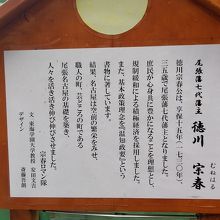 尾張藩七代藩主
徳川 宗春
むねはる
徳川宗春公は、享保十五年（一七三〇年）
三五歳で尾張藩七代藩主となりました。
庶民が心身共に豊かになることを理想とし、
規制緩和による積極経済を採用しました。
また、基本政策理念を『温知政要』という
書物に著しています。
結果、名古屋は空前の繁栄をみせ、
職人の町、芸どころの町である
尾張名古屋の基礎を築き、
人々を活き活き伸び伸びさせました。
宗春ロマン隊
文 東海学園大学教授 安田文吉
デザイン 斎藤吾朗